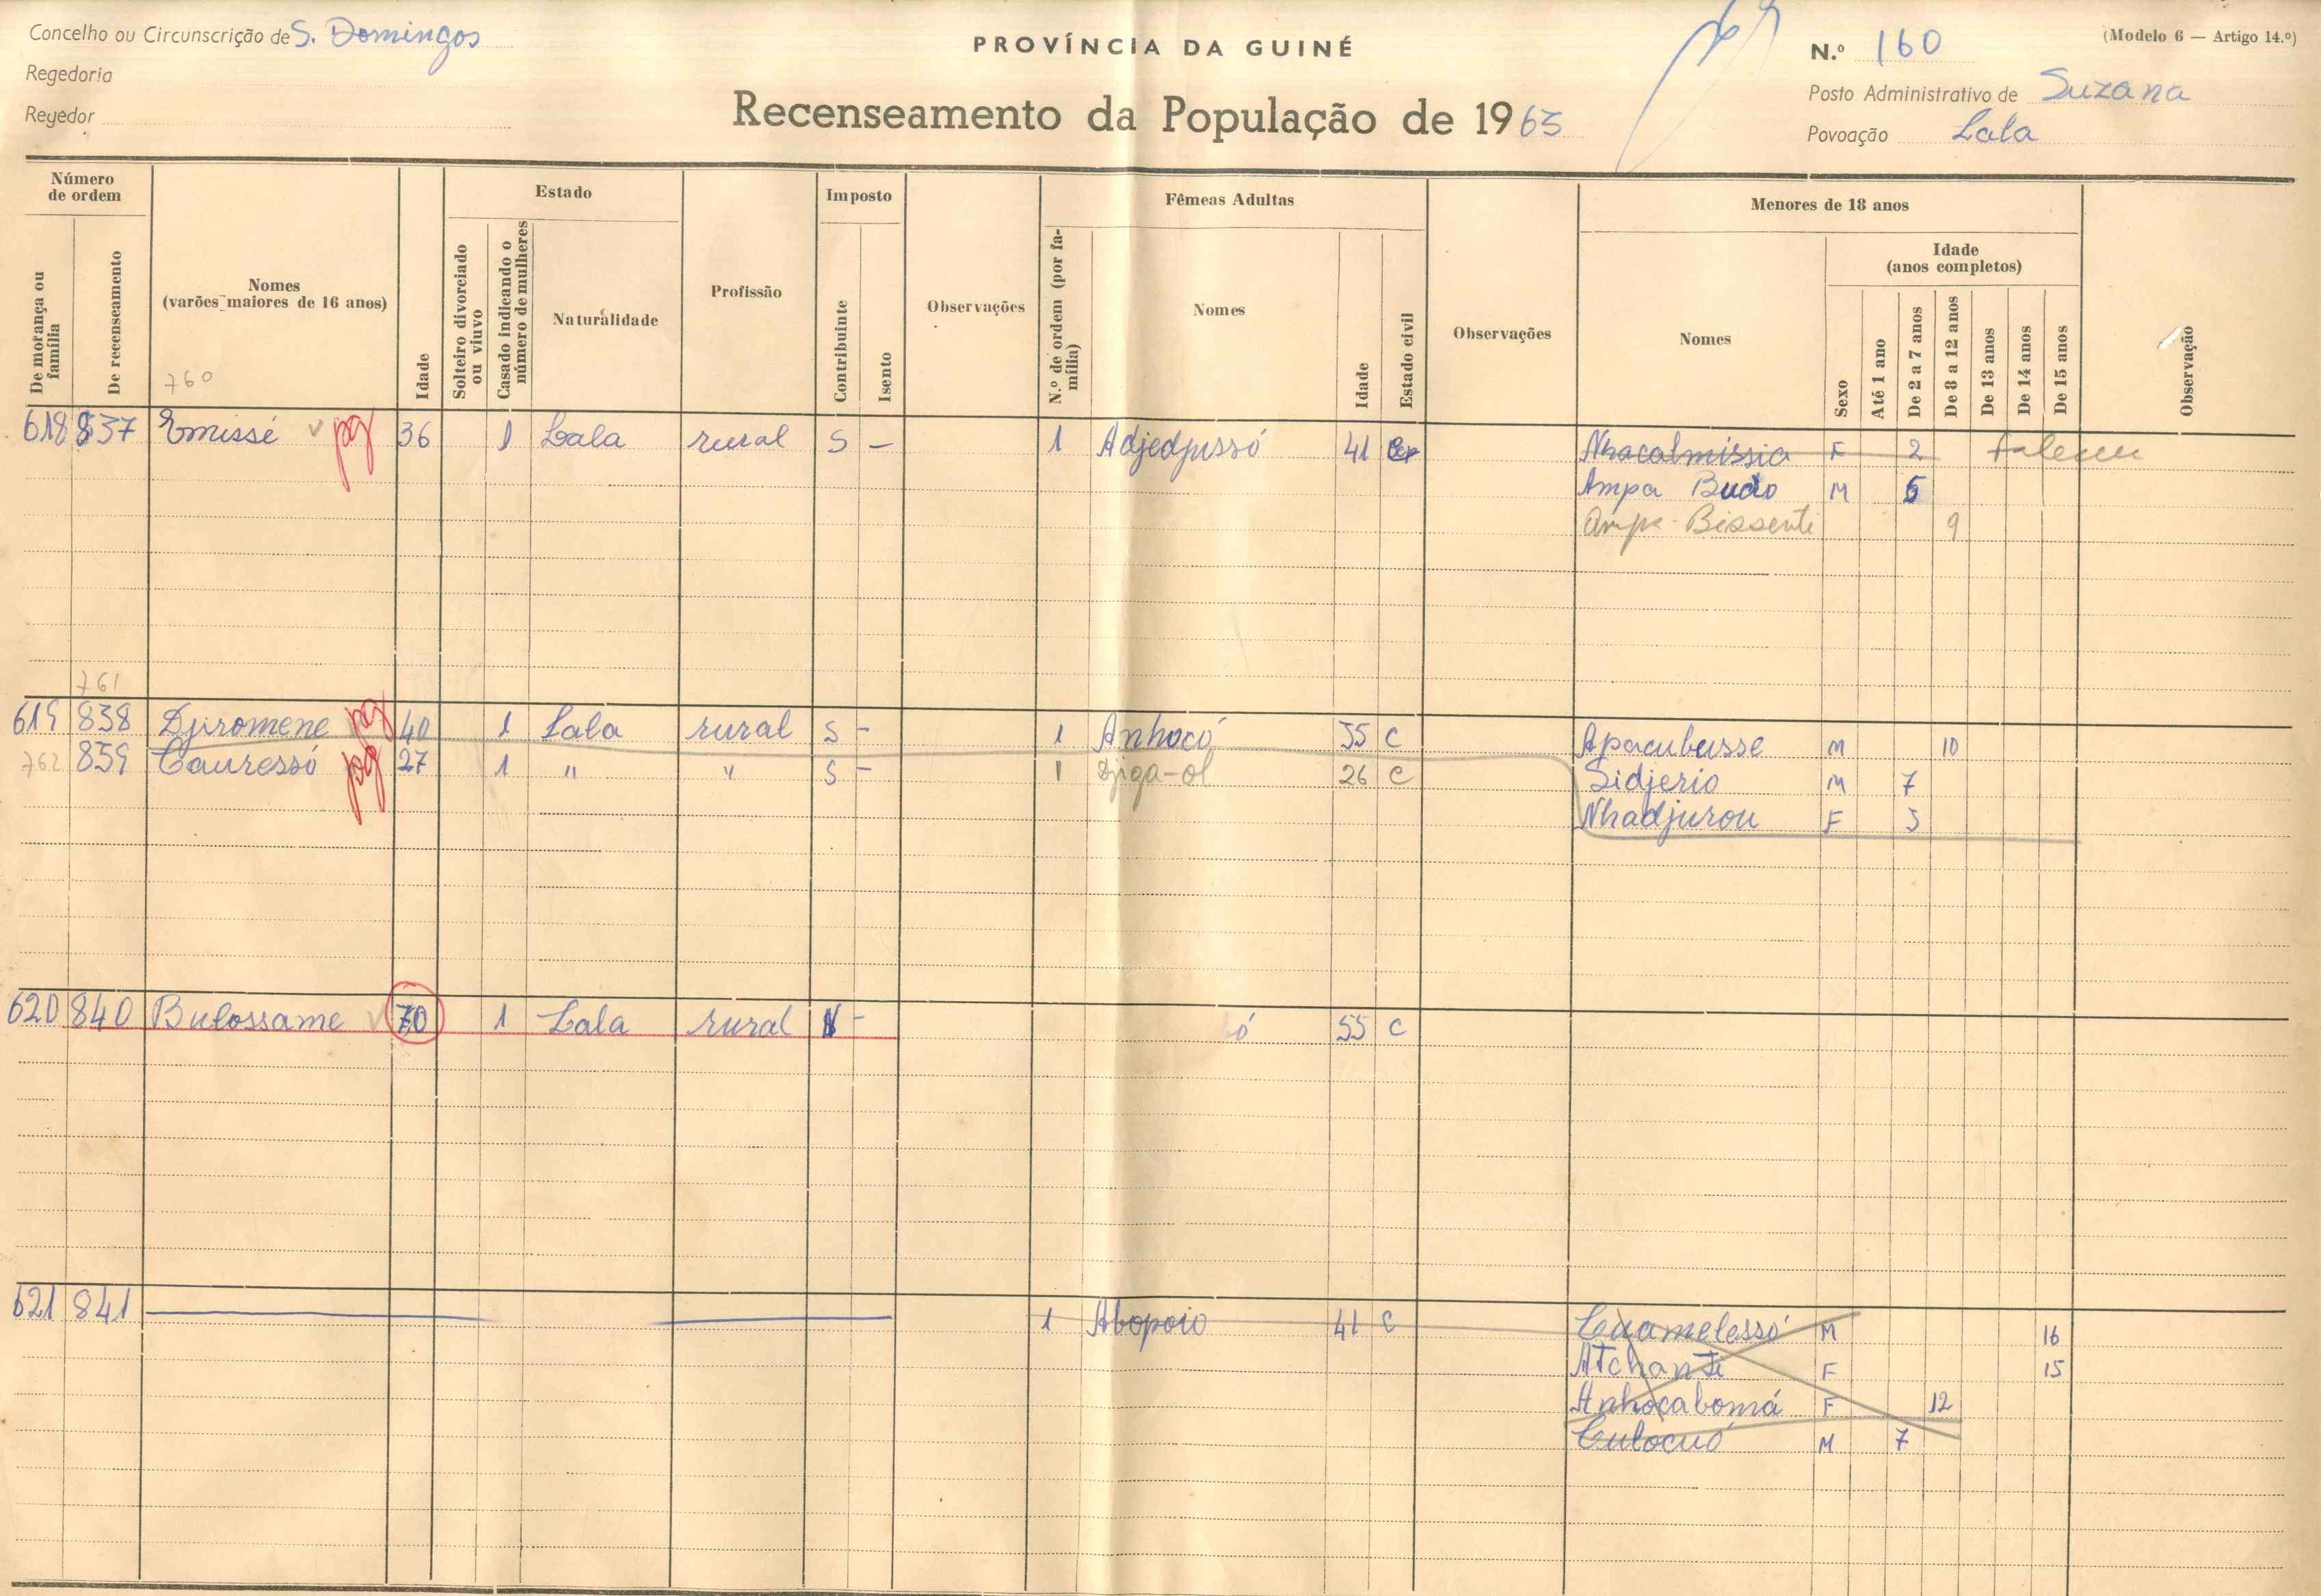 Concelho ou Circunscrição de S. Domingos
Regedoria
Regedor
PROVÍNCIA DA GUINÉ
Recenseamento da População de 1963
N.º 160
(Modelo 6 — Artigo 14.º)
Posto Administrativo de Suzana
Povoação Lala
Número de ordem
De morança ou família
De recenseamento
Nomes (varões maiores de 16 anos)
760
Idade
Estado
Solteiro divorciado ou viuvo
Casado indicando o número de mulheres
Naturalidade
Profissão
Imposto
Contribuinte
Isento
Observações
Fêmeas Adultas
N.º de ordem (por família)
Nomes
Idade
Estado civil
Observações
Menores de 18 anos
Nomes
Sexo
Idade (anos completos)
Até 1 ano
De 2 a 7 anos
De 8 a 12 anos
De 13 anos
De 14 anos
De 15 anos
Observação
618 837 Emissé pg 36 1 Lala rural S – 1 Adjedjussó 41 Nhacalmissia F 2
Ampa M 6
Ampa Bissenti 9
761
619 838 Djiromene pg 40 1 Lala rural S – 1 Anhocó 35 C Apacubusse M 10
762 839 Cauressó pg 27 1 " " S – 1 Djiga-ol 26 C Sidjerio M 7
Nhadjurou F 5
620 840 Bulossame 70 1 Lala rural N – ó 55 C
621 841 1 Abopoio 41 C Cuamelessó M 16
Atchanti F 15
Anhocabomá F 12
Culocuó M 7